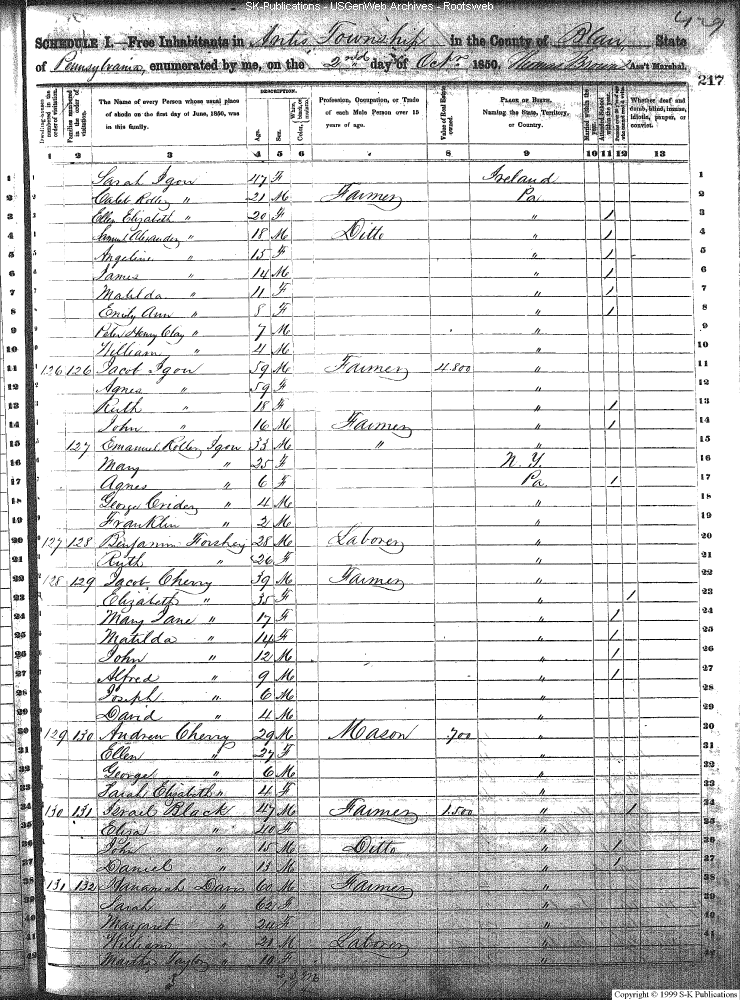 SK-Publications - USGenWeb Archives - Rootsweb
429
SCHEDULE I.—Free Inhabitants in Antis Township in the County of Blair State
of Pennsylvania, enumerated by me, on the 2nd day of Octr 1850. Thomas Brown Ass't Marshal.
217
Dwelling-houses numbered in the order of visitation.
Families numbered in the order of visitation.
The Name of every Person whose usual place of abode on the first day of June, 1850, was in this family.
DESCRIPTION.
Age.
Sex.
Color, White, black, or mulatto.
Profession, Occupation, or Trade of each Male Person over 15 years of age.
Value of Real Estate owned.
PLACE OF BIRTH. Naming the State, Territory, or Country.
Married within the year.
Attended School within the year.
Whether deaf and dumb, blind, insane, idiotic, pauper, or convict.
1 2 3 4 5 6 7 8 9 10 11 12 13
1 Sarah Igou 47 F Ireland 1
2 Caleb Roller " 21 M Farmer Pa 2
3 Ellen Elizabeth " 20 F " / 3
4 Samuel Alexander " 18 M Ditto " / 4
5 Angeline " 15 F " / 5
6 James " 14 M " / 6
7 Matilda " 11 F " / 7
8 Emily Ann " 8 F " / 8
9 Peter Henry Clay " 7 M " 9
10 William " 4 M " 10
11 126 126 Jacob Igou 59 M Farmer 4.800 " 11
12 Agnes " 59 F " 12
13 Ruth " 18 F " / 13
14 John " 16 M Farmer " / 14
15 127 Emanuel Roller Igou 33 M " " 15
16 Mary " 25 F N.Y. 16
17 Agnes " 6 F Pa / 17
18 George Crider " 4 M " 18
19 Franklin " 2 M " 19
20 127 128 Benjamin Forshey 28 M Laborer " 20
21 Ruth " 26 F " 21
22 128 129 Jacob Cherry 39 M Farmer " 22
23 Elizabeth " 35 F " / 23
24 Mary Jane " 17 F " / 24
25 Matilda " 14 F " / 25
26 John " 12 M " / 26
27 Alfred " 9 M " / 27
28 Joseph " 6 M " 28
29 David " 4 M " 29
30 129 130 Andrew Cherry 29 M Mason 700 " 30
31 Ellen " 27 F " 31
32 George " 6 M " 32
33 Sarah Elizabeth " 4 F " 33
34 130 131 Israel Black 47 M Farmer 1.500 " / 34
35 Eliza " 40 F " 35
36 John " 15 M Ditto " / 36
37 Daniel " 13 M " / 37
38 131 132 Hananiah Davis 60 M Farmer " 38
39 Sarah " 62 F " 39
40 Margaret " 24 F " 40
41 William " 21 M Laborer " 41
42 Martha Taylor 10 F " 42
Copyright © 1999 S-K Publications